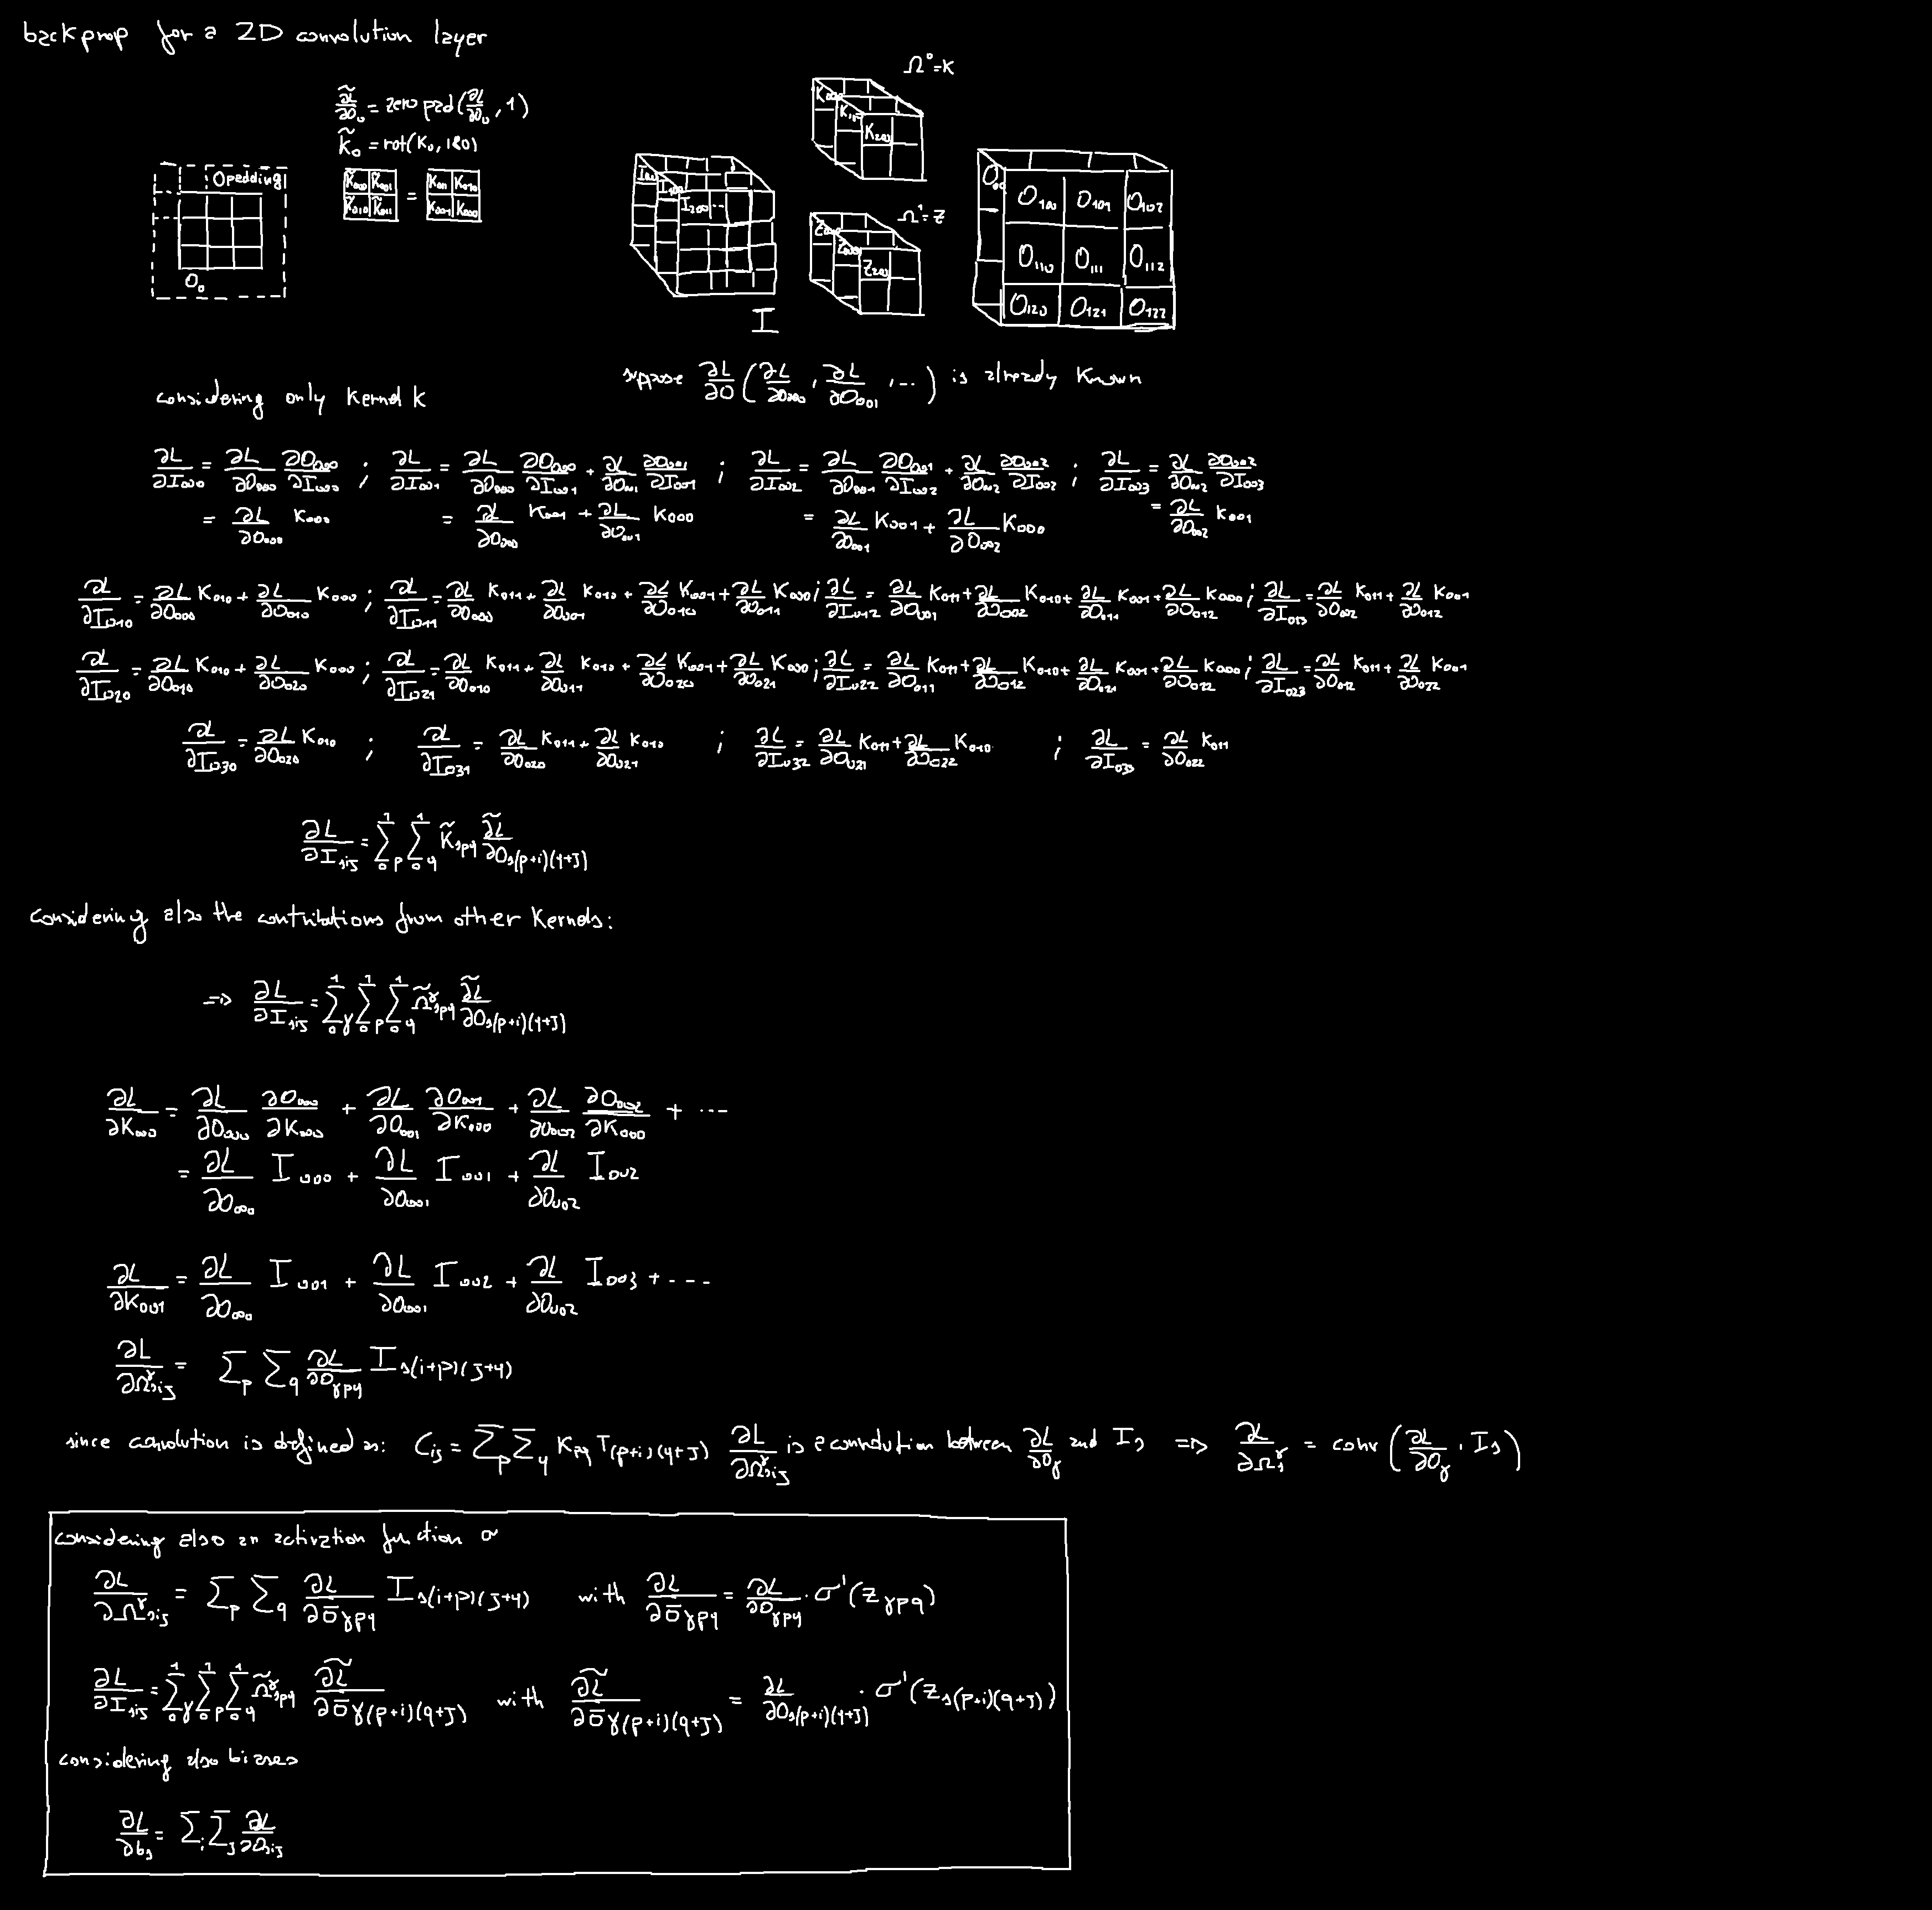 backprop for a 2D convolution layer
∂̃L/∂O₀ = zero pad(∂L/∂O₀, 1)
K̃₀ = rot(K₀, 180)
0 padding
O₀
K̃₀₀₀ K̃₀₀₁ K̃₀₁₀ K̃₀₁₁ = K₀₁₁ K₀₁₀ K₀₀₁ K₀₀₀
Ω⁰=K
K₀₀₀ K₁₀₀ K₂₀₀
I₀₀₀ I₁₀₀ I₂₀₀ ...
I
Ω¹=Z
Z₀₀₀ Z₀₀₀ Z₂₀₀
O₀₀₀
O₁₀₀ O₁₀₁ O₁₀₂
O₁₁₀ O₁₁₁ O₁₁₂
O₁₂₀ O₁₂₁ O₁₂₂
suppose ∂L/∂O (∂L/∂O₀₀₀, ∂L/∂O₀₀₁, ...) is already known
considering only kernel K
∂L/∂I₀₀₀ = ∂L/∂O₀₀₀ ∂O₀₀₀/∂I₀₀₀ ; ∂L/∂I₀₀₁ = ∂L/∂O₀₀₀ ∂O₀₀₀/∂I₀₀₁ + ∂L/∂O₀₀₁ ∂O₀₀₁/∂I₀₀₁ ; ∂L/∂I₀₀₂ = ∂L/∂O₀₀₁ ∂O₀₀₁/∂I₀₀₂ + ∂L/∂O₀₀₂ ∂O₀₀₂/∂I₀₀₂ ; ∂L/∂I₀₀₃ = ∂L/∂O₀₀₂ ∂O₀₀₂/∂I₀₀₃
= ∂L/∂O₀₀₀ K₀₀₀ = ∂L/∂O₀₀₀ K₀₀₁ + ∂L/∂O₀₀₁ K₀₀₀ = ∂L/∂O₀₀₁ K₀₀₁ + ∂L/∂O₀₀₂ K₀₀₀ = ∂L/∂O₀₀₂ K₀₀₁
∂L/∂I₀₁₀ = ∂L/∂O₀₀₀ K₀₁₀ + ∂L/∂O₀₁₀ K₀₀₀ ; ∂L/∂I₀₁₁ = ∂L/∂O₀₀₀ K₀₁₁ + ∂L/∂O₀₀₁ K₀₁₀ + ∂L/∂O₀₁₀ K₀₀₁ + ∂L/∂O₀₁₁ K₀₀₀ ; ∂L/∂I₀₁₂ = ∂L/∂O₀₀₁ K₀₁₁ + ∂L/∂O₀₀₂ K₀₁₀ + ∂L/∂O₀₁₁ K₀₀₁ + ∂L/∂O₀₁₂ K₀₀₀ ; ∂L/∂I₀₁₃ = ∂L/∂O₀₀₂ K₀₁₁ + ∂L/∂O₀₁₂ K₀₀₁
∂L/∂I₀₂₀ = ∂L/∂O₀₁₀ K₀₁₀ + ∂L/∂O₀₂₀ K₀₀₀ ; ∂L/∂I₀₂₁ = ∂L/∂O₀₁₀ K₀₁₁ + ∂L/∂O₀₁₁ K₀₁₀ + ∂L/∂O₀₂₀ K₀₀₁ + ∂L/∂O₀₂₁ K₀₀₀ ; ∂L/∂I₀₂₂ = ∂L/∂O₀₁₁ K₀₁₁ + ∂L/∂O₀₁₂ K₀₁₀ + ∂L/∂O₀₂₁ K₀₀₁ + ∂L/∂O₀₂₂ K₀₀₀ ; ∂L/∂I₀₂₃ = ∂L/∂O₀₁₂ K₀₁₁ + ∂L/∂O₀₂₂ K₀₀₁
∂L/∂I₀₃₀ = ∂L/∂O₀₂₀ K₀₁₀ ; ∂L/∂I₀₃₁ = ∂L/∂O₀₂₀ K₀₁₁ + ∂L/∂O₀₂₁ K₀₁₀ ; ∂L/∂I₀₃₂ = ∂L/∂O₀₂₁ K₀₁₁ + ∂L/∂O₀₂₂ K₀₁₀ ; ∂L/∂I₀₃₃ = ∂L/∂O₀₂₂ K₀₁₁
∂L/∂I_sij = Σ₀¹_p Σ₀¹_q K̃_spq ∂̃L/∂O_s(p+i)(q+j)
considering also the contributions from other kernels:
=> ∂L/∂I_sij = Σ₀¹_γ Σ₀¹_p Σ₀¹_q Ω̃^γ_spq ∂̃L/∂O_s(p+i)(q+j)
∂L/∂K₀₀₀ = ∂L/∂O₀₀₀ ∂O₀₀₀/∂K₀₀₀ + ∂L/∂O₀₀₁ ∂O₀₀₁/∂K₀₀₀ + ∂L/∂O₀₀₂ ∂O₀₀₂/∂K₀₀₀ + ...
= ∂L/∂O₀₀₀ I₀₀₀ + ∂L/∂O₀₀₁ I₀₀₁ + ∂L/∂O₀₀₂ I₀₀₂
∂L/∂K₀₀₁ = ∂L/∂O₀₀₀ I₀₀₁ + ∂L/∂O₀₀₁ I₀₀₂ + ∂L/∂O₀₀₂ I₀₀₃ + ....
∂L/∂Ω^γ_sij = Σ_p Σ_q ∂L/∂O_γpq I_s(i+p)(j+q)
since convolution is defined as: C_ij = Σ_p Σ_q K_pq T_(p+i)(q+j) ∂L/∂Ω^γ_sij is a convolution between ∂L/∂O_γ and I_s => ∂L/∂Ω^γ_s = conv(∂L/∂O_γ, I_s)
considering also an activation function σ
∂L/∂Ω^γ_sij = Σ_p Σ_q ∂L/∂Ō_γpq I_s(i+p)(j+q) with ∂L/∂Ō_γpq = ∂L/∂O_γpq · σ'(z_γpq)
∂L/∂I_sij = Σ₀¹_γ Σ₀¹_p Σ₀¹_q Ω̃^γ_spq ∂̃L/∂Ō_γ(p+i)(q+j) with ∂̃L/∂Ō_γ(p+i)(q+j) = ∂L/∂O_s(p+i)(q+j) · σ'(z_s(p+i)(q+j))
considering also biases
∂L/∂b_s = Σ_i Σ_j ∂L/∂O_sij